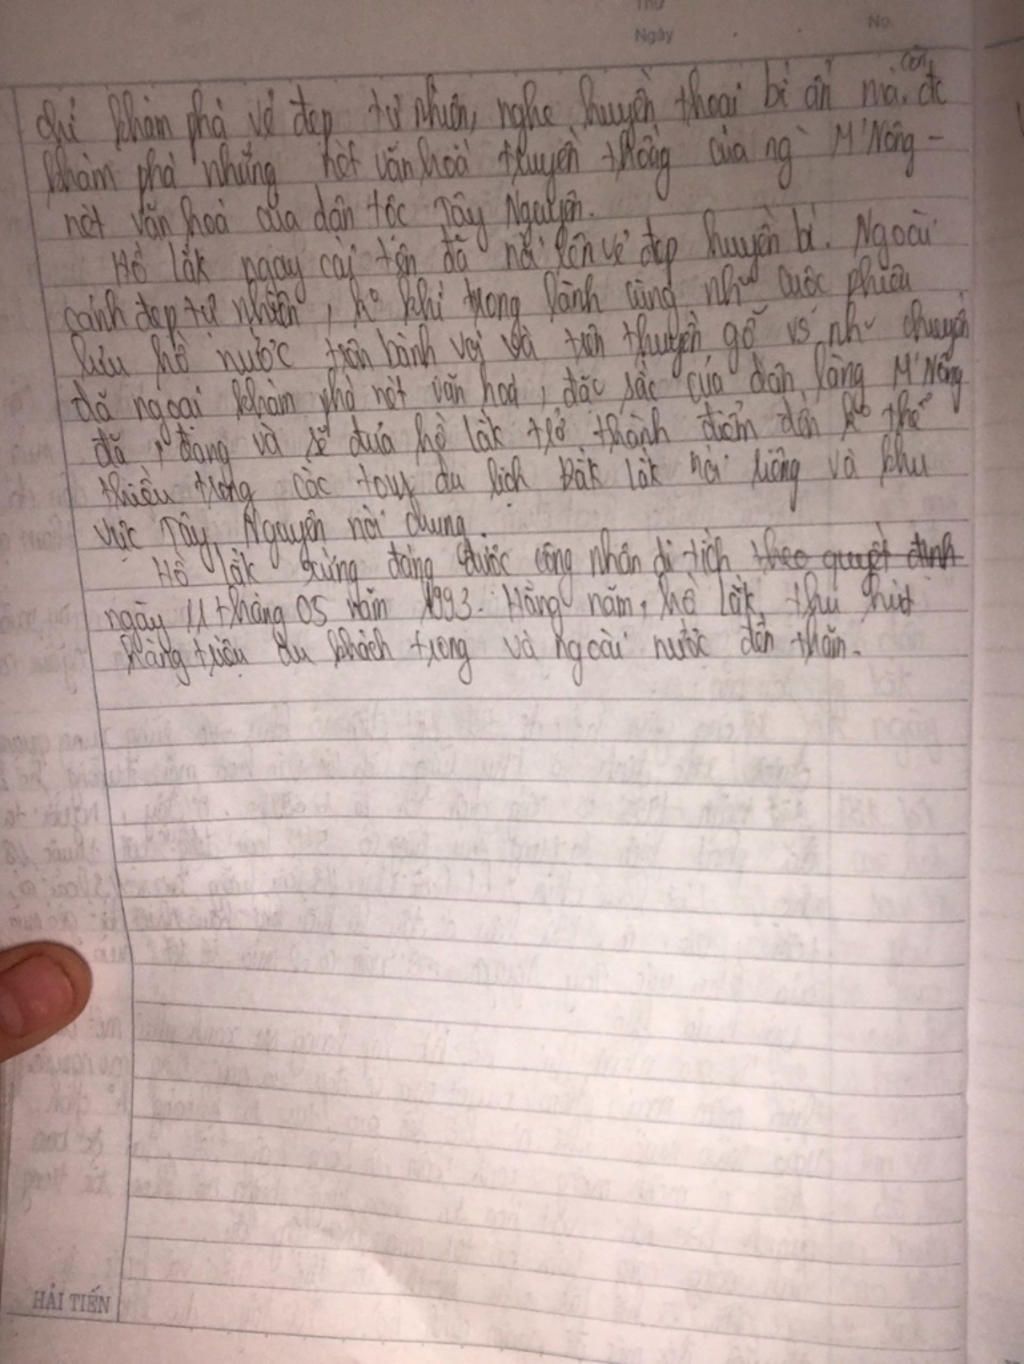 Thứ
Ngày No.
chỉ khám phá vẻ đẹp tự nhiên, nghe huyền thoại bí ẩn mà còn đc
khám phá những nét văn hoá truyền thống của ng` M'Nông -
nét văn hoá của dân tộc Tây Nguyên.
Hồ Lắk ngay cái tên đã nói lên vẻ đẹp huyền bí. Ngoài
cảnh đẹp tự nhiên, ko khí trong lành cùng như cuộc phiêu
lưu hồ nước trên bành voi và trên thuyền gỗ vs như chuyến
dã ngoại khám phá nét văn hoá, đặc sắc của dân làng M'Nông
đã, đang và sẽ đưa hồ Lắk trở thành điểm đến ko thể
thiếu trong các tour du lịch Đắk Lắk nói riêng và khu
vực Tây Nguyên nói chung.
Hồ Lắk xứng đáng được công nhận di tích theo quyết định
ngày 11 tháng 05 năm 1993. Hằng năm, hồ Lắk thu hút
hàng triệu du khách trong và ngoài nước đến thăm.
HẢI TIẾN